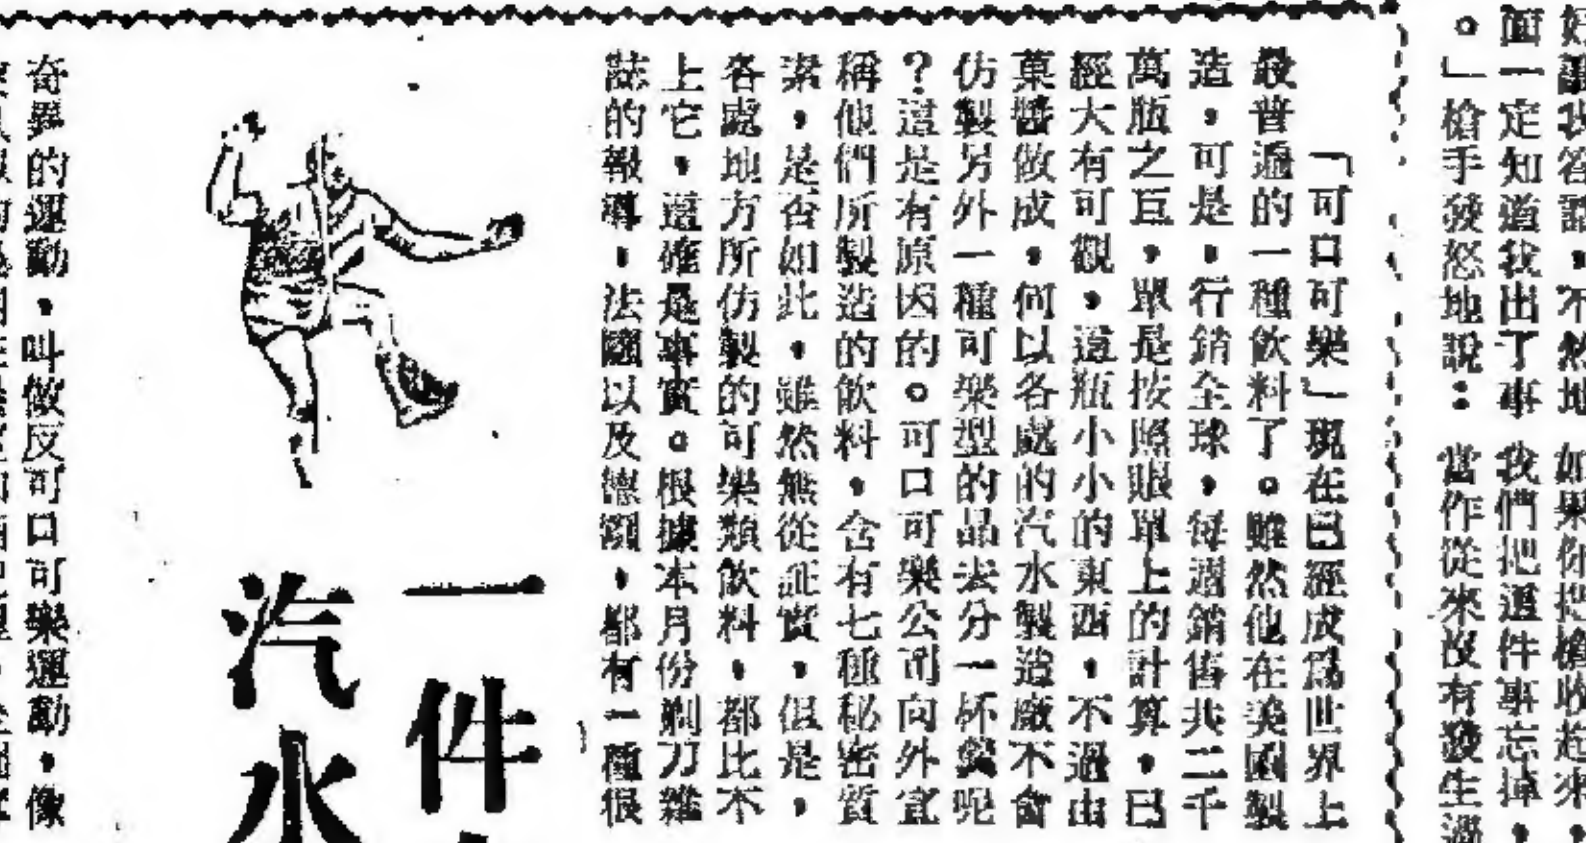 好讓我答話，不然地 如果你把槍收起來，
面一定知道我出了事 我們把這件事忘掉，
。」槍手發怒地說： 當作從來沒有發生過
「可口可樂」現在已經成爲世界上
最普遍的一種飲料了。雖然他在美國製
造，可是，行銷全球，每週銷售共二千
萬瓶之巨，單是按照賬單上的計算，已
經大有可觀，這瓶小小的東西，不過由
菓醬做成，何以各處的汽水製造廠不會
仿製另外一種可樂型的品去分一杯羹呢
？這是有原因的。可口可樂公司向外宣
稱他們所製造的飲料，含有七種秘密質
素，是否如此，雖然無從証實，但是，
各處地方所仿製的可樂類飲料，都比不
上它，這確是事實。根據本月份剃刀雜
誌的報導，法國以及德國，都有一種很
一件
汽水
奇異的運動，叫做反可口可樂運動，像